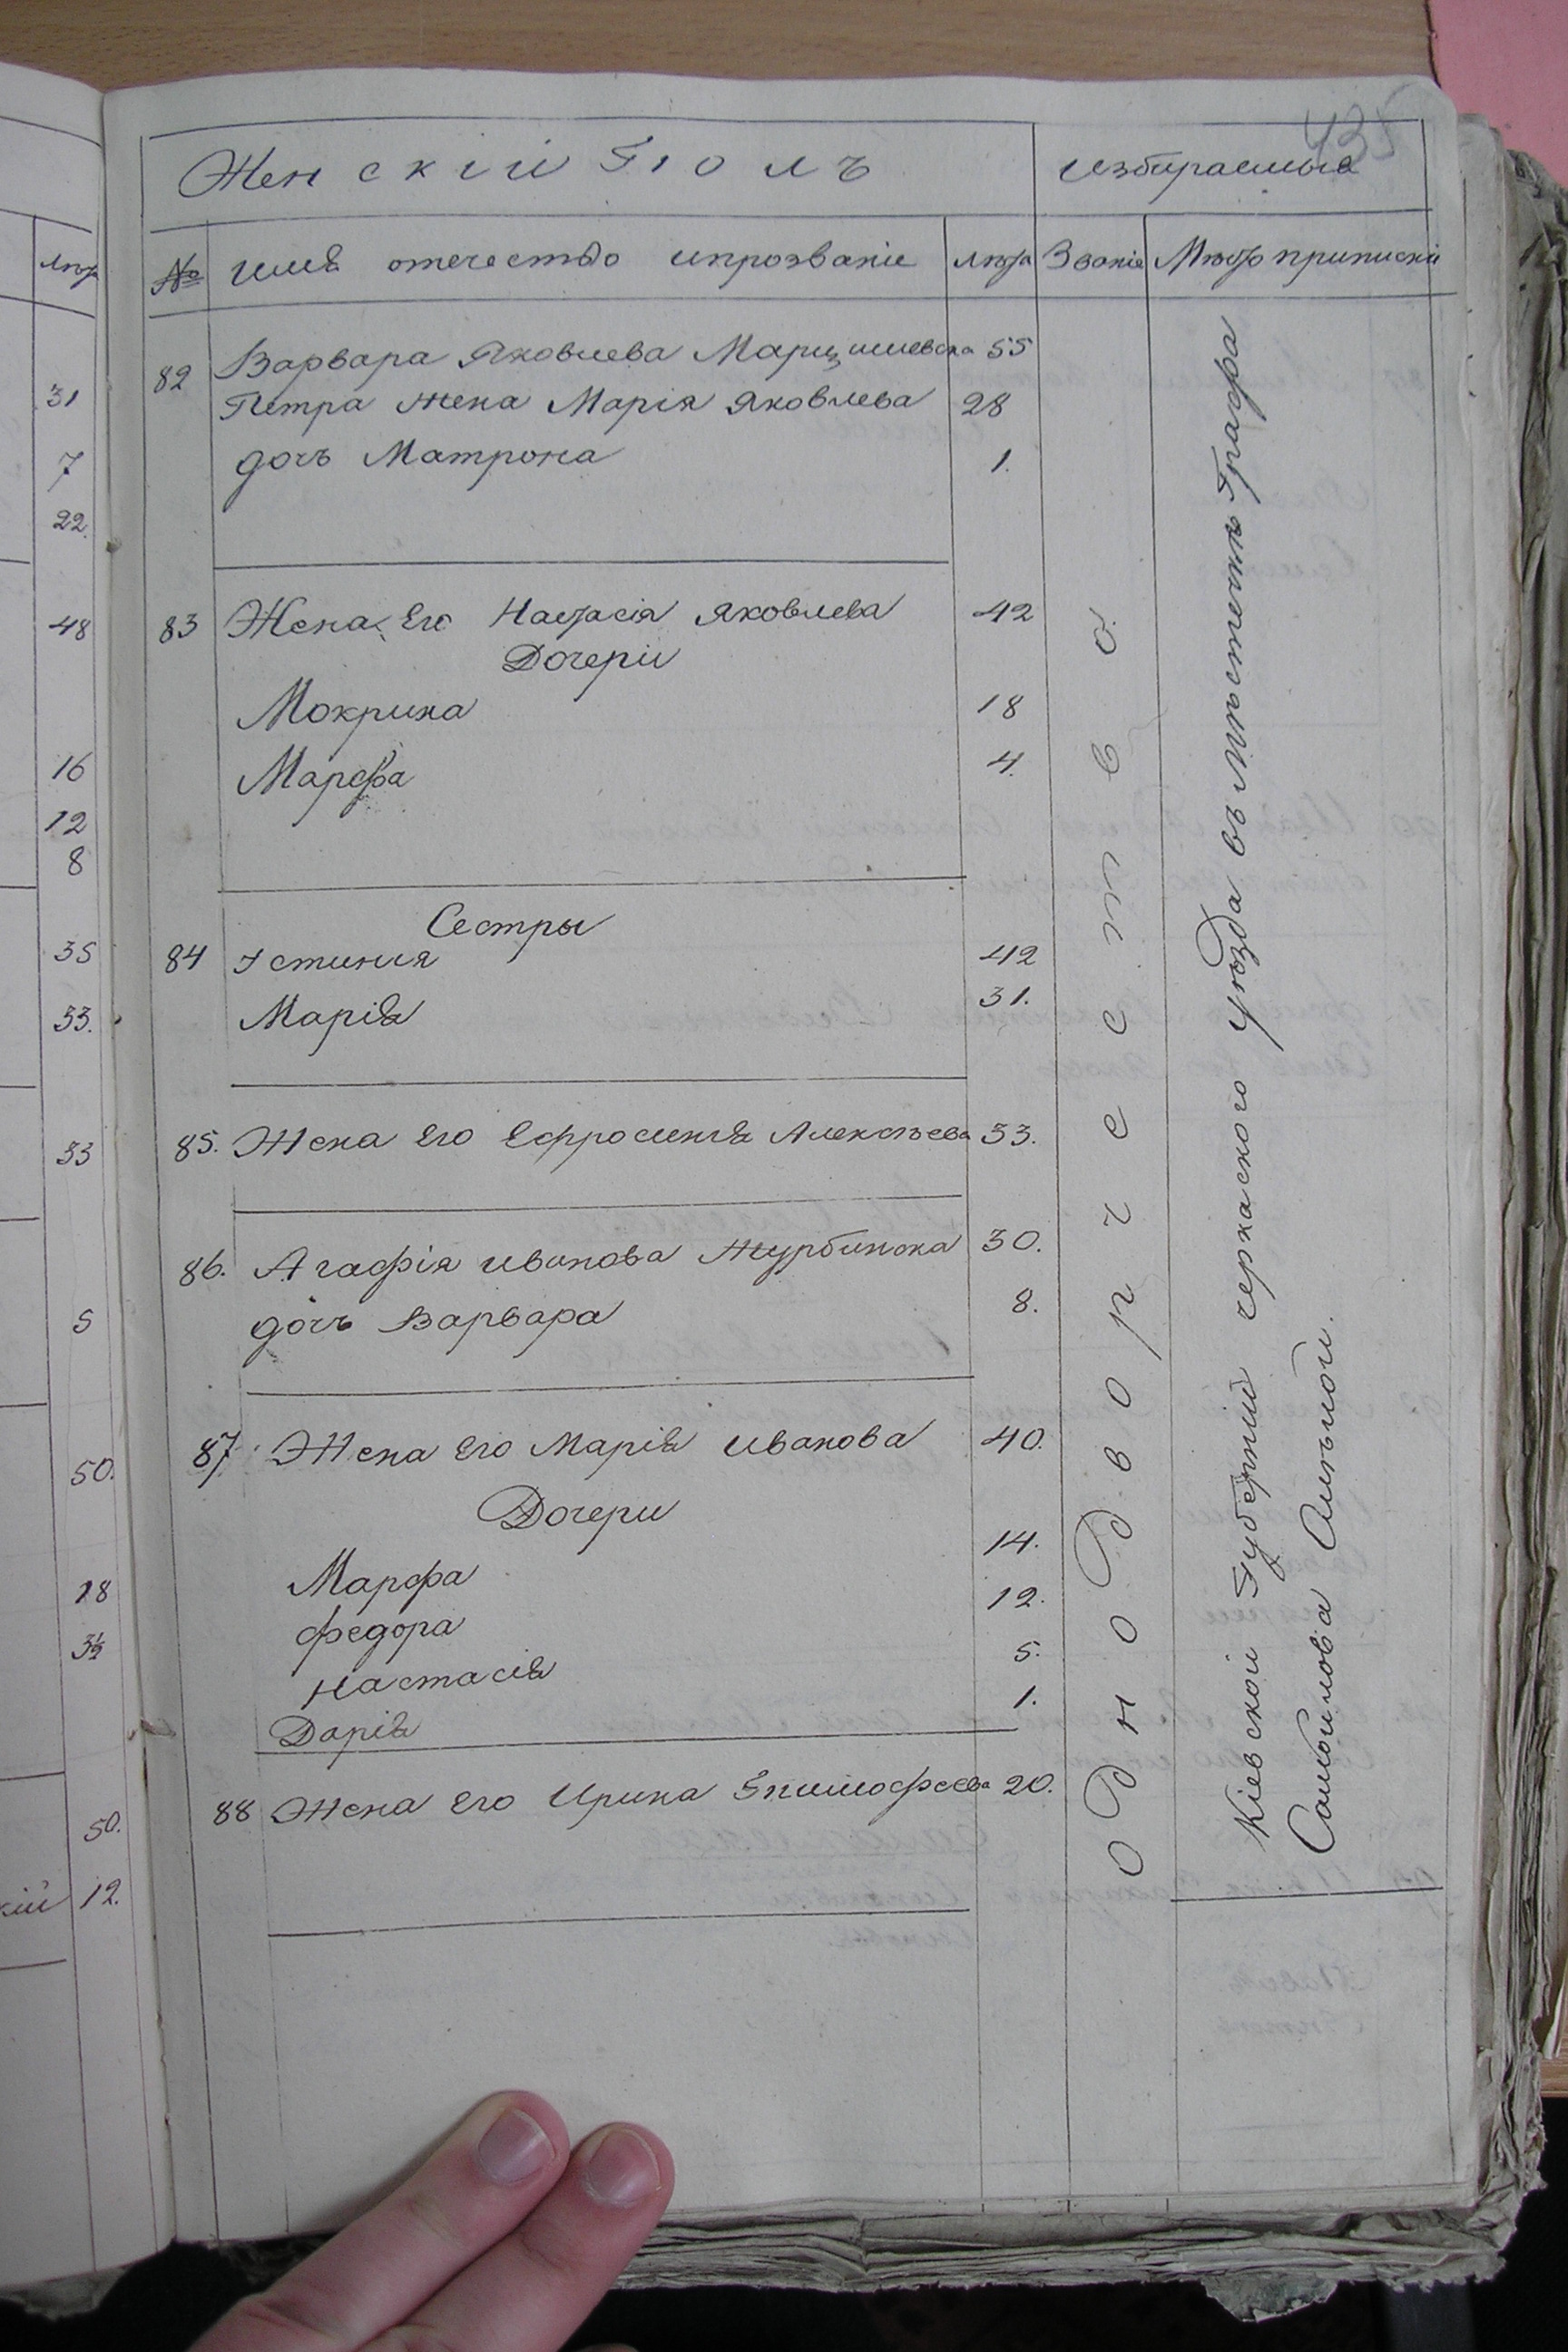 435
Женскій Полъ избираемыя
№ имя отечество ипрозваніе лѣта Званіе Мѣсто приписки
82 Варвара Яковлева 55
Петра жена Марія Яковлева 28
дочь Матрона 1.
83 Жена Его Настасія Яковлева 42
Дочери
Мокрина 18
Марфа 4.
Сестры
84 Устинія 42
Марія 31.
85. Жена Его Ефросинія Алексѣева 33.
86. Агафія иванова Журбинска 30.
дочь Варвара 8.
87. Жена Его Марія иванова 40.
Дочери
Марфа 14.
федора 12.
Настасія 5.
Дарія 1.
88 Жена Его Ирина 20.
однодворчество.
Кіевской Губерніи черкаского уѣзда въ мѣстечкѣ Графа
Самойлова Смѣлой.
лѣта
31
7
22.
48
16
12
8
35
33.
33
5
50.
18
50.
кій 12.